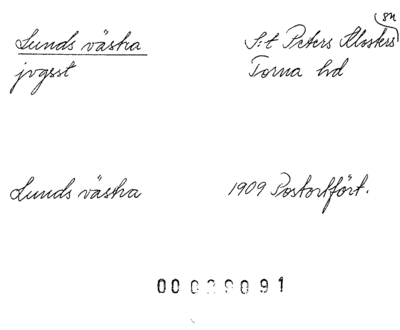 Lunds västra
jvgsst
S:t Peters Klosters sn
Torna hd
Lunds västra
1909 Postortfört.